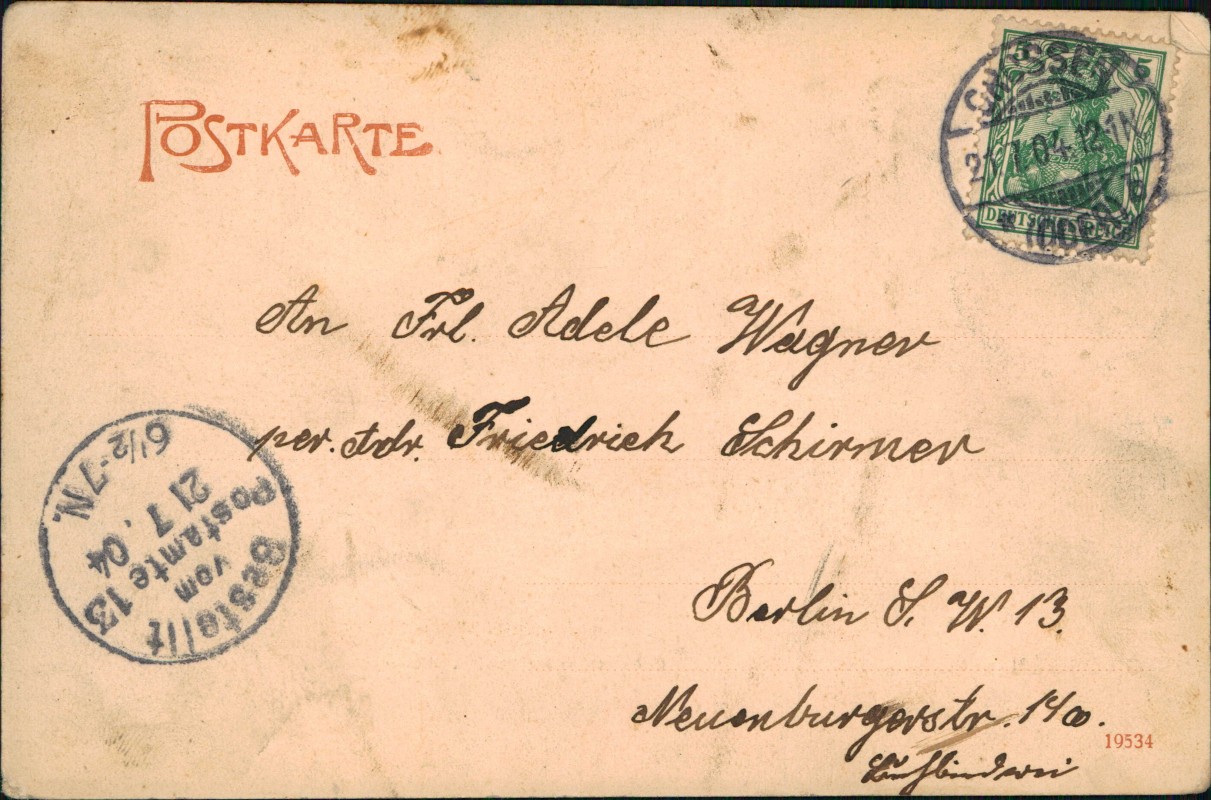 POSTKARTE
5 5
CROSSEN
21.7.04.12-1N.
* (ODER) b
DEUTSCHES REICH
An Frl. Adele Wagner
per. Adr. Friedrich Schirmer
Bestellt
vom
Postamte 13
21 7. 04
6½-7N.
Berlin S. W. 13.
Neuenburgerstr. 14a.
19534
Buchbinderei